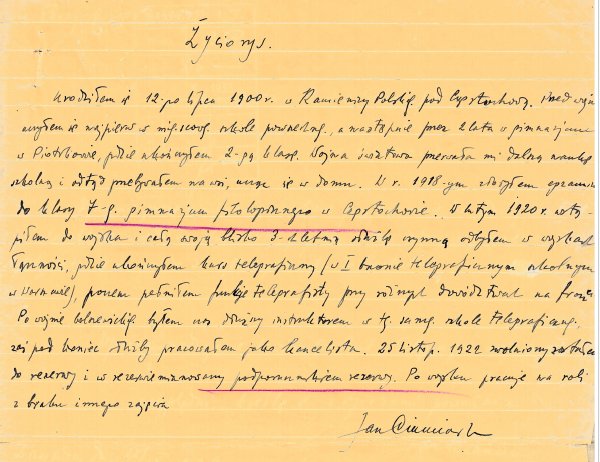 Życiorys.
Urodziłem się 12-go lipca 1900 r. w Kamienicy Polskiej pod Częstochową. Przed wojną
uczyłem się najpierw w miejscowej szkole powszechnej, a następnie przez 2 lata w gimnazjum
w Piotrkowie, gdzie ukończyłem 2-gą klasę. Wojna światowa przerwała mi dalszą naukę
szkolną i odtąd przebywałem na wsi, ucząc się w domu. W r. 1918-ym zdałem egzamin
do klasy 7-ej gimnazjum filologicznego w Częstochowie. W lutym 1920 r. wstą-
piłem do wojska i całą swoją blisko 3-letnią służbę czynną odbyłem w wojskach
łączności, gdzie ukończyłem kurs telegraficzny (w I baonie telegraficznym szkolnym
w Warszawie), poczem pełniłem funkcje telegrafisty przy różnych dowództwach na froncie
Po wojnie bolszewickiej byłem czas dłuższy instruktorem w tej samej szkole telegraficznej,
zaś pod koniec służby pracowałem jako kancelista. 25 listop. 1922 zwolniony zostałem
do rezerwy i w rezerwie mianowany podporucznikiem rezerwy. Po wojsku pracuję na roli
z braku innego zajęcia
Jan